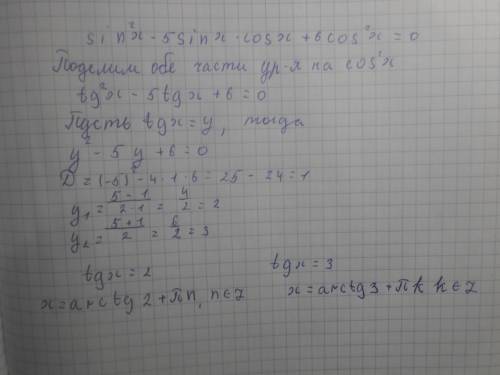 sin²x - 5sinx·cosx + 6cos²x = 0
Поделим обе части ур-я на cos²x
tg²x - 5tgx + 6 = 0
Пусть tgx = y, тогда
y² - 5y + 6 = 0
D = (-5)² - 4·1·6 = 25 - 24 = 1
y₁ = (5-1)/(2·1) = 4/2 = 2
y₂ = (5+1)/2 = 6/2 = 3
tgx = 2 tgx = 3
x = arctg 2 + Пn, n∈Z x = arctg 3 + Пk k∈Z